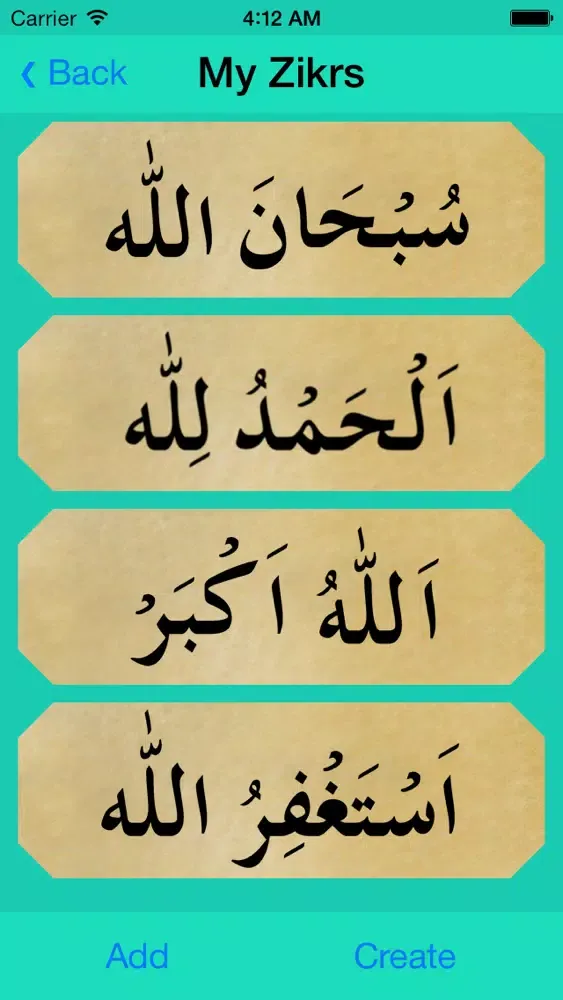 Carrier 4:12 AM
❮ Back My Zikrs
سُبْحَانَ اللّٰه
اَلْحَمْدُ لِلّٰه
اَللّٰهُ اَكْبَرْ
اَسْتَغْفِرُ اللّٰه
Add Create